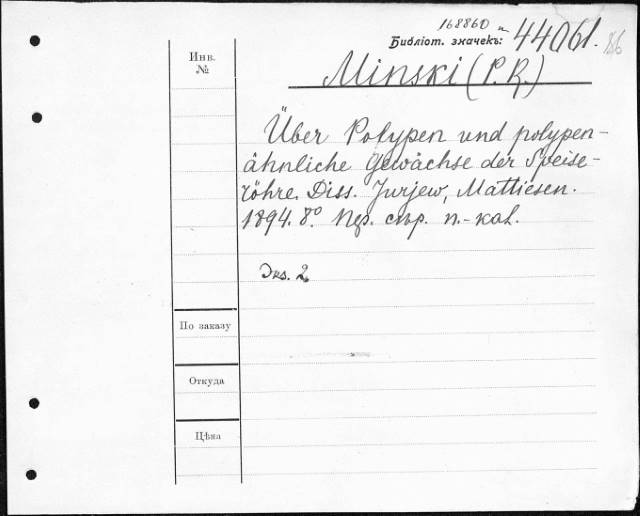 168860
Библіот. значекъ: 44061.
Инв.
№
Minski (P. R.)
Über Polypen und polypen-
ähnliche Gewächse der Speise-
röhre. Diss. Jurjew, Mattiesen.
1894. 8°. Мед. стр. п.-кал.
Экз. 2
По заказу
Откуда
Цѣна